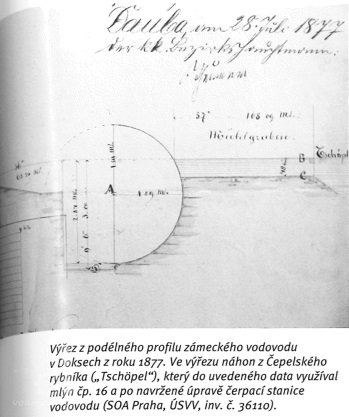 Dauba, am 28. Juli 1877
der kk. Bezirkshauptmann:
57°
Tschöp
B
A
C
Výřez z podélného profilu zámeckého vodovodu
v Doksech z roku 1877. Ve výřezu náhon z Čepelského
rybníka („Tschöpel“), který do uvedeného data využíval
mlýn čp. 16 a po navržené úpravě čerpací stanice
vodovodu (SOA Praha, ÚSVV, inv. č. 36110).